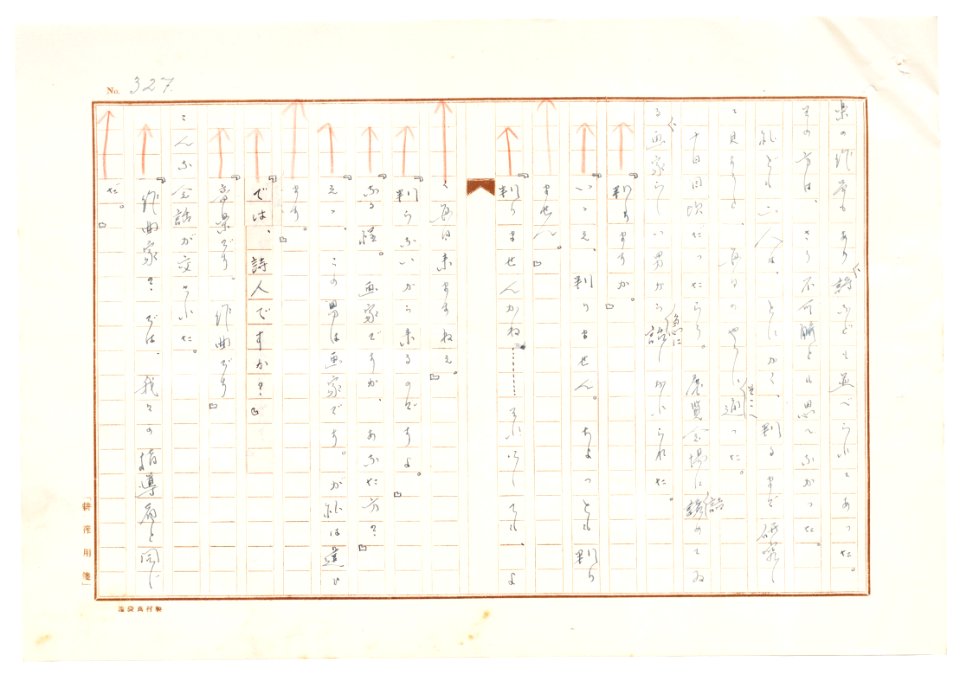 No. 327
果の作者もあり詩などは並べられてあつた。
その方は、さう不可解とも思へなかつた。
私ども二人は、とにかく、判るまで研究し
て見ようと、毎日のやうにそこへ通つた。
十日目頃だつたらう。展覧会場に詰めてゐ
る画家らしい男から急に話しかけられた。
『判りますか。』
『いゝえ、判りません。ちよつとも判り
ません。』
『判りませんかね………それにしても、よ
く毎日来ますねえ。』
『判らないから来るのですよ。』
『なる程。画家ですか、あなた方?』
『えゝ、この男は画家です。が私は違ひ
ます。』
『では、詩人ですか?』
『音楽です。作曲です』
こんな会話が交された。
『作曲家? では、我々の指導者と同じ
だ。』
「耕筰用箋」